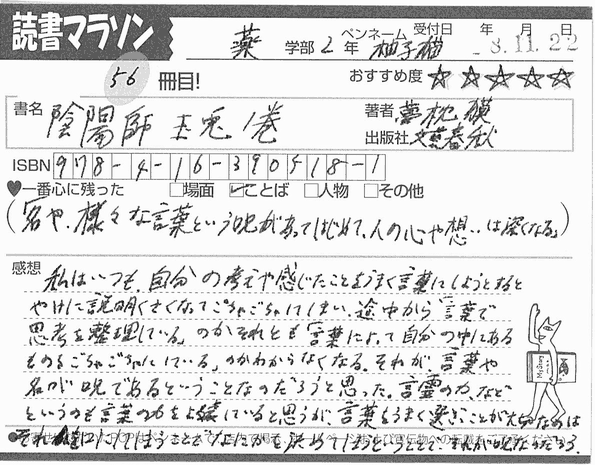 読書マラソン
薬 学部 2 年 ペンネーム 柚子猫 受付日 年 月 日 -8.11.22
56 冊目!
おすすめ度 ☆☆☆☆☆
書名 陰陽師 玉兎ノ巻
著者 夢枕獏
出版社 文藝春秋
ISBN 978-4-16-390518-1
♥一番心に残った □場面 ☑ことば □人物 □その他
(「名や、様々な言葉という呪があってはじめて、人の心や想いは深くなる」)
感想 私はいつも、自分の考えや感じたことをうまく言葉にしようとすると
やけに説明くさくなってごちゃごちゃしてしまい、途中から「言葉で
思考を整理している」のかそれとも「言葉によって自分の中にある
ものをごちゃごちゃにしている」のかわからなくなる。それが「言葉や
名が呪であるということなのだろうと思った。言霊の力、など
というのも言葉の力を よ ていると思うが、言葉をうまく選ぶことが大切なのは
それ にしてしまうとも なにかを決めてしまうということで、それが呪なのだろう。